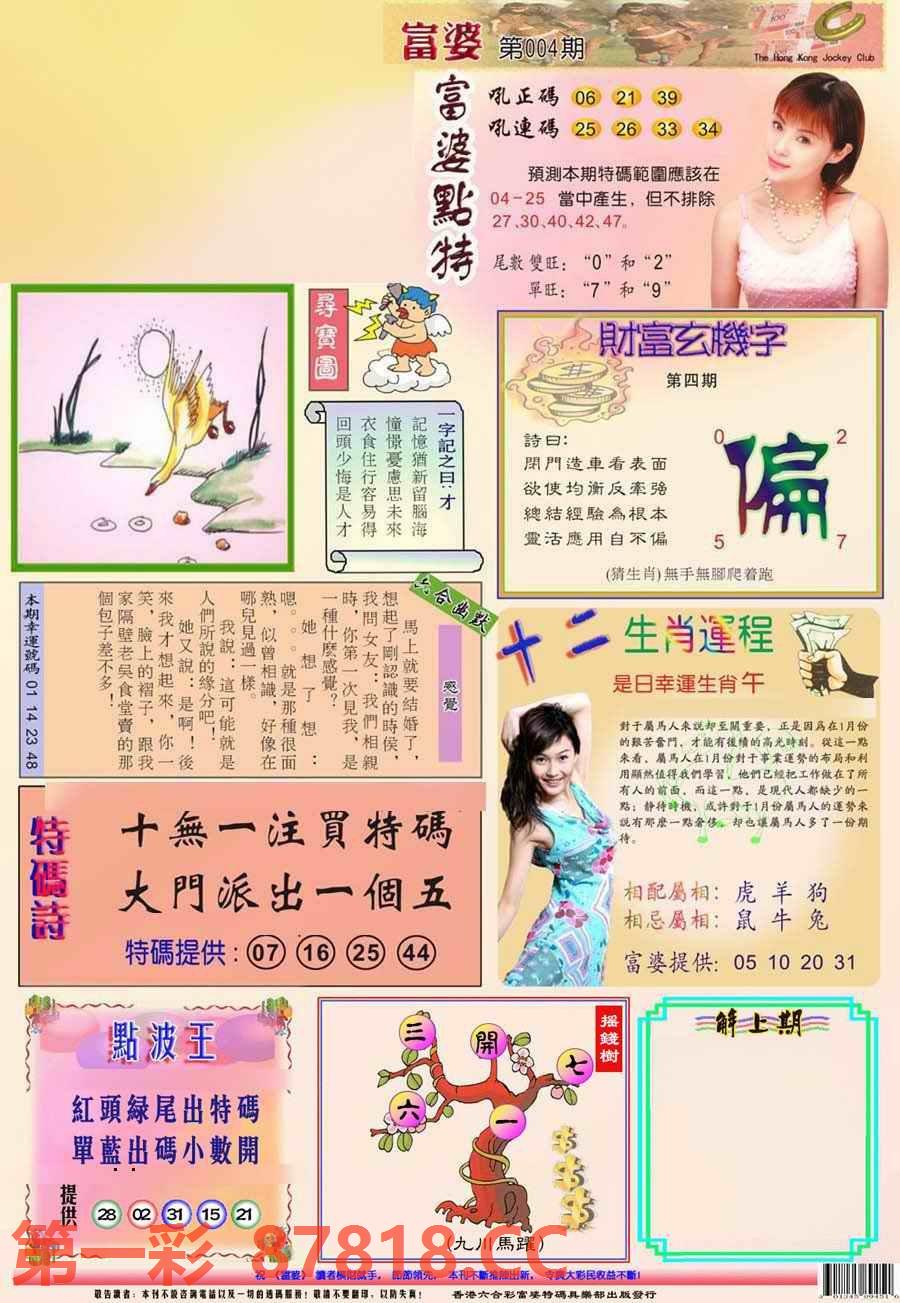 富婆 第004期
The Hong Kong Jockey Club
富婆點特
吼正碼 06 21 39
吼連碼 25 26 33 34
預測本期特碼範圍應該在
04-25 當中產生,但不排除
27、30、40、42、47。
尾數雙旺:“0”和“2”
單旺:“7”和“9”
尋寶圖
一字記之曰:才
記憶猶新留腦海
憧憬憂慮思未來
衣食住行容易得
回頭少悔是人才
財富玄機字
第四期
詩曰:
閉門造車看表面
欲使均衡反牽強
總結經驗為根本
靈活應用自不偏
0 2
偏
5 7
(猜生肖)無手無腳爬着跑
六合幽默
感覺
馬上就要結婚了,
想起了剛認識的時侯,
我問女友:我們相親
時,你第一次見我,是
一種什麼感覺?
她想了想:
嗯。。。就是那種很面
熟,似曾相識,好像在
哪兒見過一樣。
我說:這可能就是
人們所說的緣分吧!
她又說:是啊!後
來我才想起來,你一
笑,臉上的褶子,跟我
家隔壁老吳食堂賣的那
個包子差不多!
本期幸運號碼 01 14 23 48
十二生肖運程
是日幸運生肖 午
對于屬馬人來説却至關重要,正是因爲在1月份
的艱苦奮鬥,才能有後續的高光時刻。從這一點
來看,屬馬人在1月份對于事業運勢的布局和利
用顯然值得我們學習,他們已經把工作做在了所
有人的前面,而這一點,是現代人都缺少的一
點;静待時機,或許對于1月份屬馬人的運勢來
説有那麽一點奢侈,却也讓屬馬人多了一份期
待。
相配屬相: 虎 羊 狗
相忌屬相: 鼠 牛 兔
富婆提供: 05 10 20 31
特碼詩
十無一注買特碼
大門派出一個五
特碼提供: 07 16 25 44
點波王
紅頭緑尾出特碼
單藍出碼小數開
提供 28 02 31 15 21
搖錢樹
三 開 七
六 一
(九川馬躍)
解上期
第一彩 87818.CC
祝《富婆》讀者橫財就手,節節領先,本刊不斷推陳出新,令廣大彩民收益不斷!
敬告讀者:本刊不設咨詢電話以及一切的透碼服務!敬請不要翻印,以防失真!
香港六合彩富婆特碼具樂部出版發行